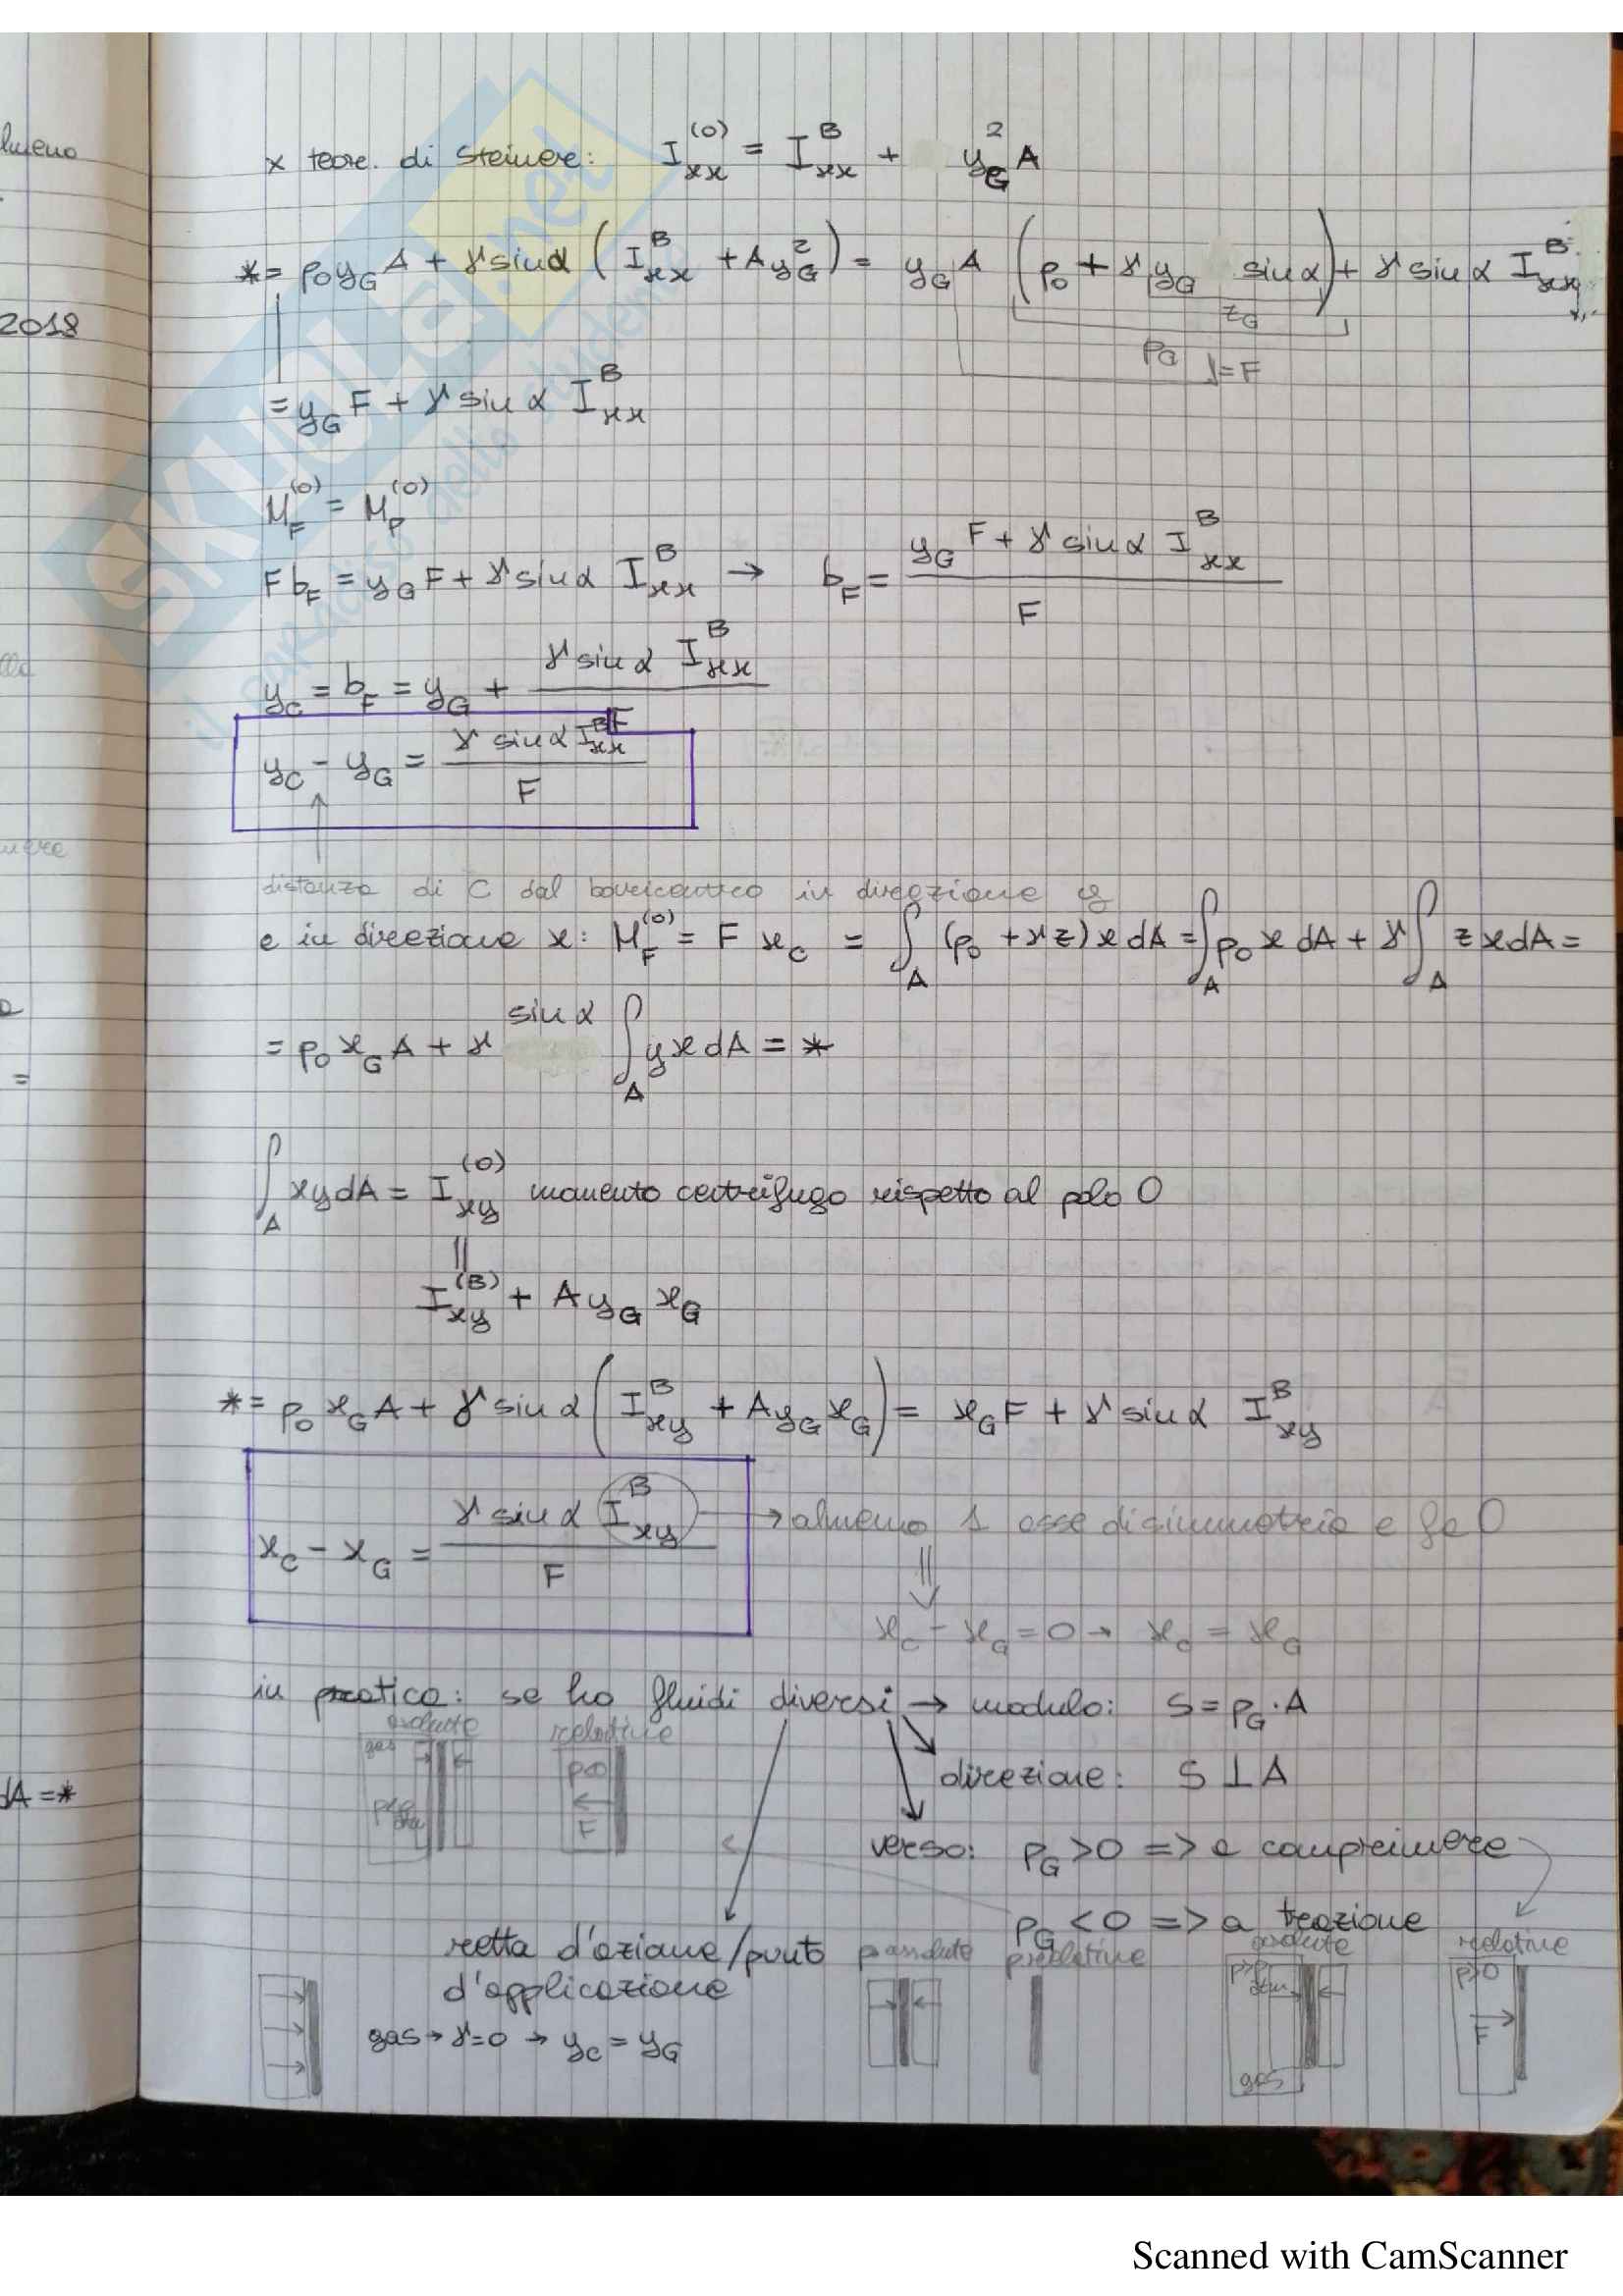 lmeno
x teore. di Steiner: I_xx^(0) = I_xx^B + y_G^2 A
* = p₀ y_G A + γ sin α (I_xx^B + A y_G^2) = y_G A (p₀ + γ y_G sin α) + γ sin α I_xx^B
z_G
2018
p_G
= F
= y_G F + γ sin α I_xx^B
M_F^(0) = M_P^(0)
F b_F = y_G F + γ sin α I_xx^B → b_F = (y_G F + γ sin α I_xx^B) / F
y_C = b_F = y_G + γ sin α I_xx^B / F
y_C - y_G = γ sin α I_xx^B / F
distanza di C dal baricentro in direzione y
e in direzione x: M_F^(0) = F x_C = ∫_A (p₀ + γz) x dA = ∫_A p₀ x dA + γ ∫_A z x dA =
= p₀ x_G A + γ sin α ∫_A y x dA = *
=
∫_A xy dA = I_xy^(0) momento centrifugo rispetto al polo O
||
I_xy^(B) + A y_G x_G
* = p₀ x_G A + γ sin α (I_xy^B + A y_G x_G) = x_G F + γ sin α I_xy^B
x_C - x_G = γ sin α I_xy^B / F → almeno 1 asse di simmetria e fa 0
⇓
x_C - x_G = 0 → x_C = x_G
in pratica: se ho fluidi diversi → modulo: S = p_G · A
assolute relative
gas
p<0
F
direzione: S ⊥ A
dA = *
verso: p_G > 0 => a comprimere
p_G < 0 => a trazione
retta d'azione/punto
d'applicazione
gas → γ=0 → y_C = y_G
p assolute p relative
assolute relative
p>p atm
gas
p>0
F
SKUOLA.net
il paradiso dello studente
Scanned with CamScanner